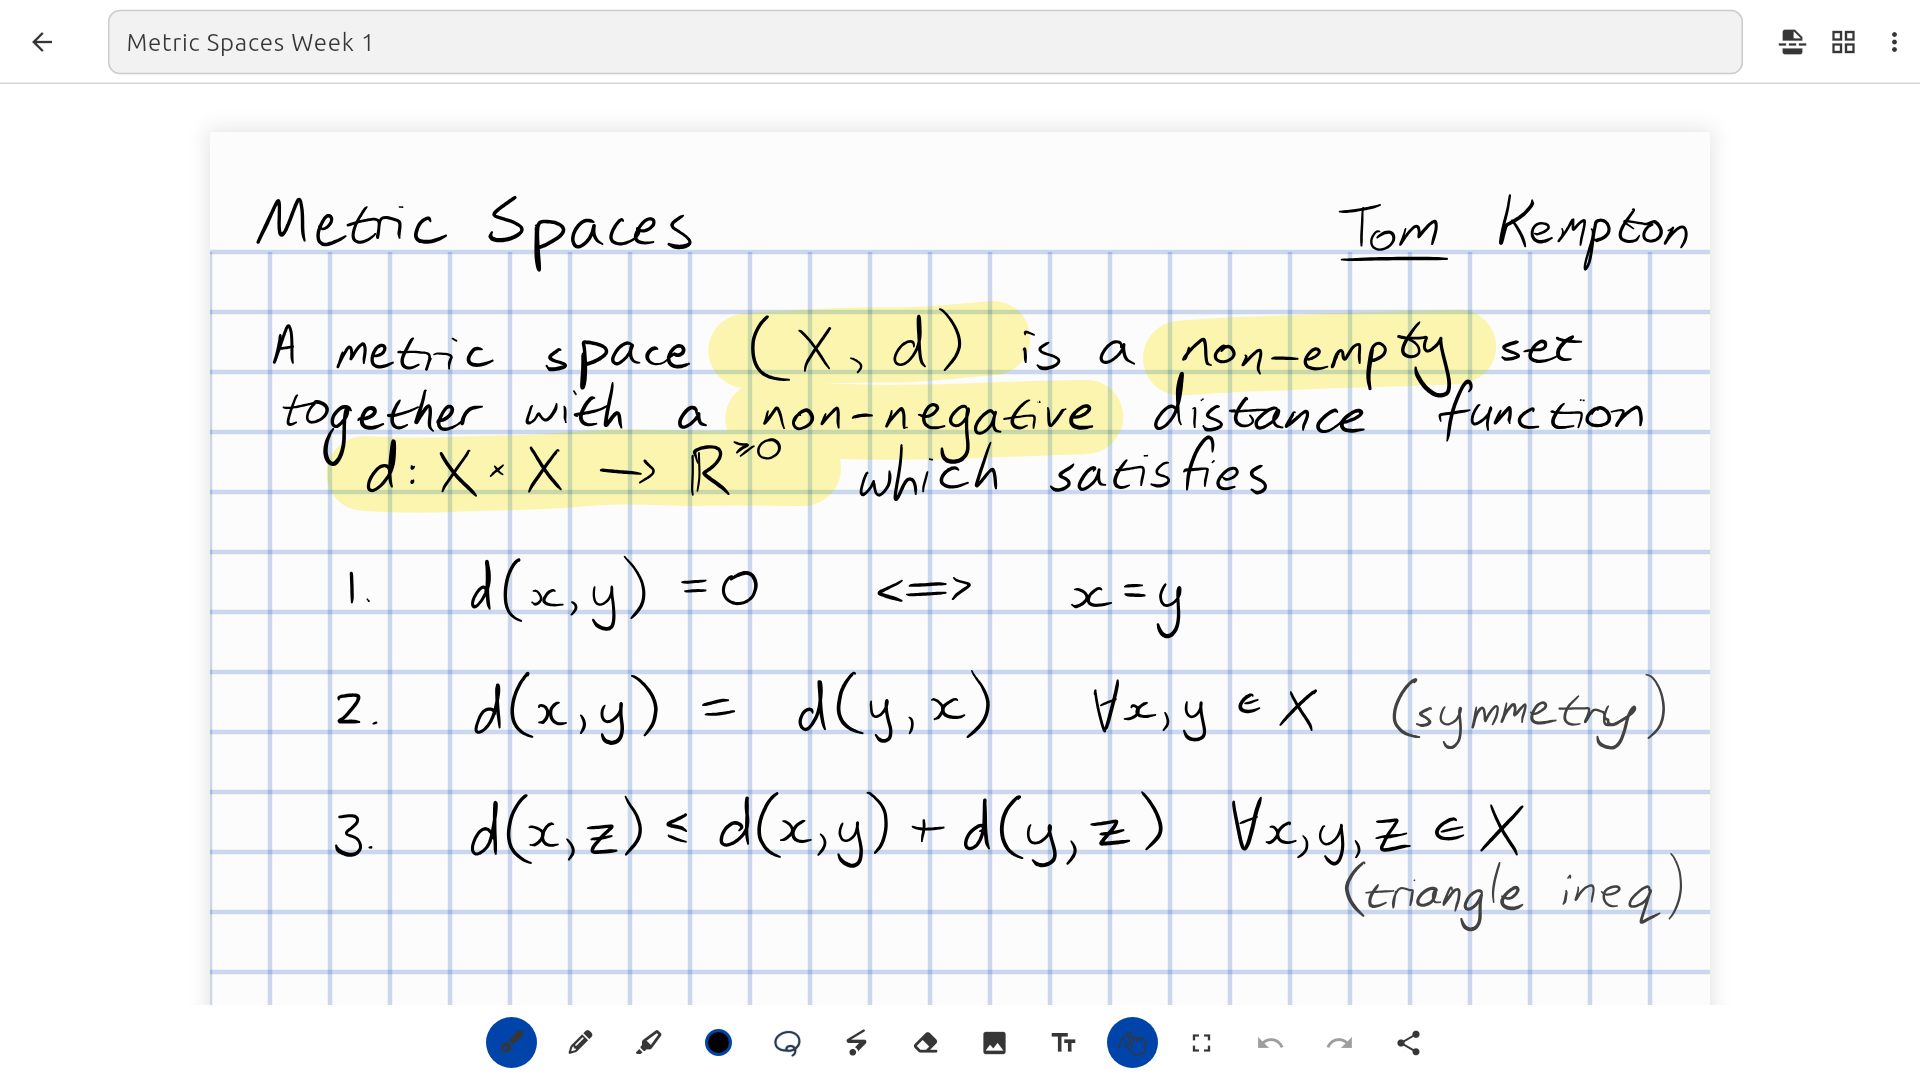 Metric Spaces Week 1
Metric Spaces Tom Kempton
A metric space (X, d) is a non-empty set
together with a non-negative distance function
d: X × X → ℝ^≥0 which satisfies
1. d(x,y) = 0 <=> x = y
2. d(x,y) = d(y,x) ∀x,y ∈ X (symmetry)
3. d(x,z) ≤ d(x,y) + d(y,z) ∀x,y,z ∈ X
(triangle ineq)
Tт